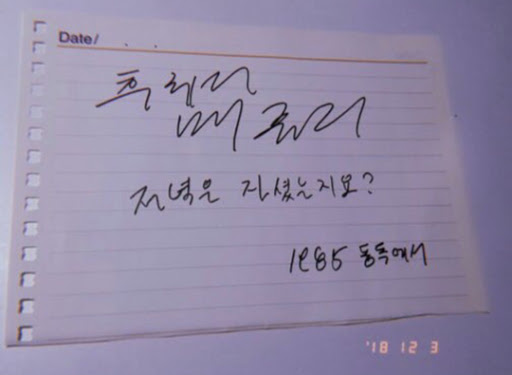 Date/ . .
후레디
머큐리
저녁은 자셨는지요?
1985 동독에서
'18 12 3